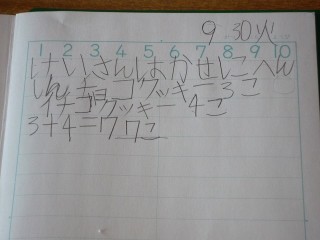 9 30火
1 2 3 4 5 6 7 8 9 10
けいさんはかせにへん
しん チョコクッキー3こ
イチゴクッキー 4こ
3+4=7 7こ